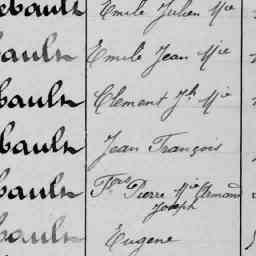 ebault Emile Julien Mie
bault Emile Jean Mie
bault Clement Jh Mie
bault Jean François
bault Fois Pierre Mie Armand
Joseph
bault Eugene